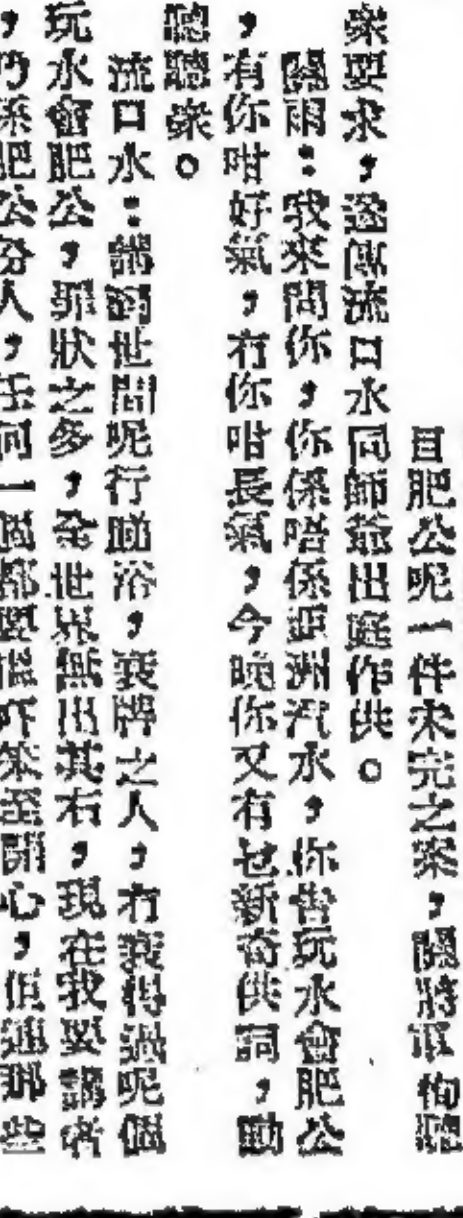 目肥公呢一件未完之案，關將軍徇聽
衆要求，遂傳流口水同師爺出庭作供。
關雨：我來問你，你係唔係亞洲汽水，你吿玩水會肥公
，有你咁好氣，冇你咁長氣，今晚你又有乜新奇供詞，動
聽聽衆。
流口水：講到世間呢行 ，衰牌之人，冇衰得過呢個
玩水會肥公，罪狀之多，全世界無出其右，現在我要講者
，乃係肥公 人，任何一個都要 吓笨至開心，但連那些